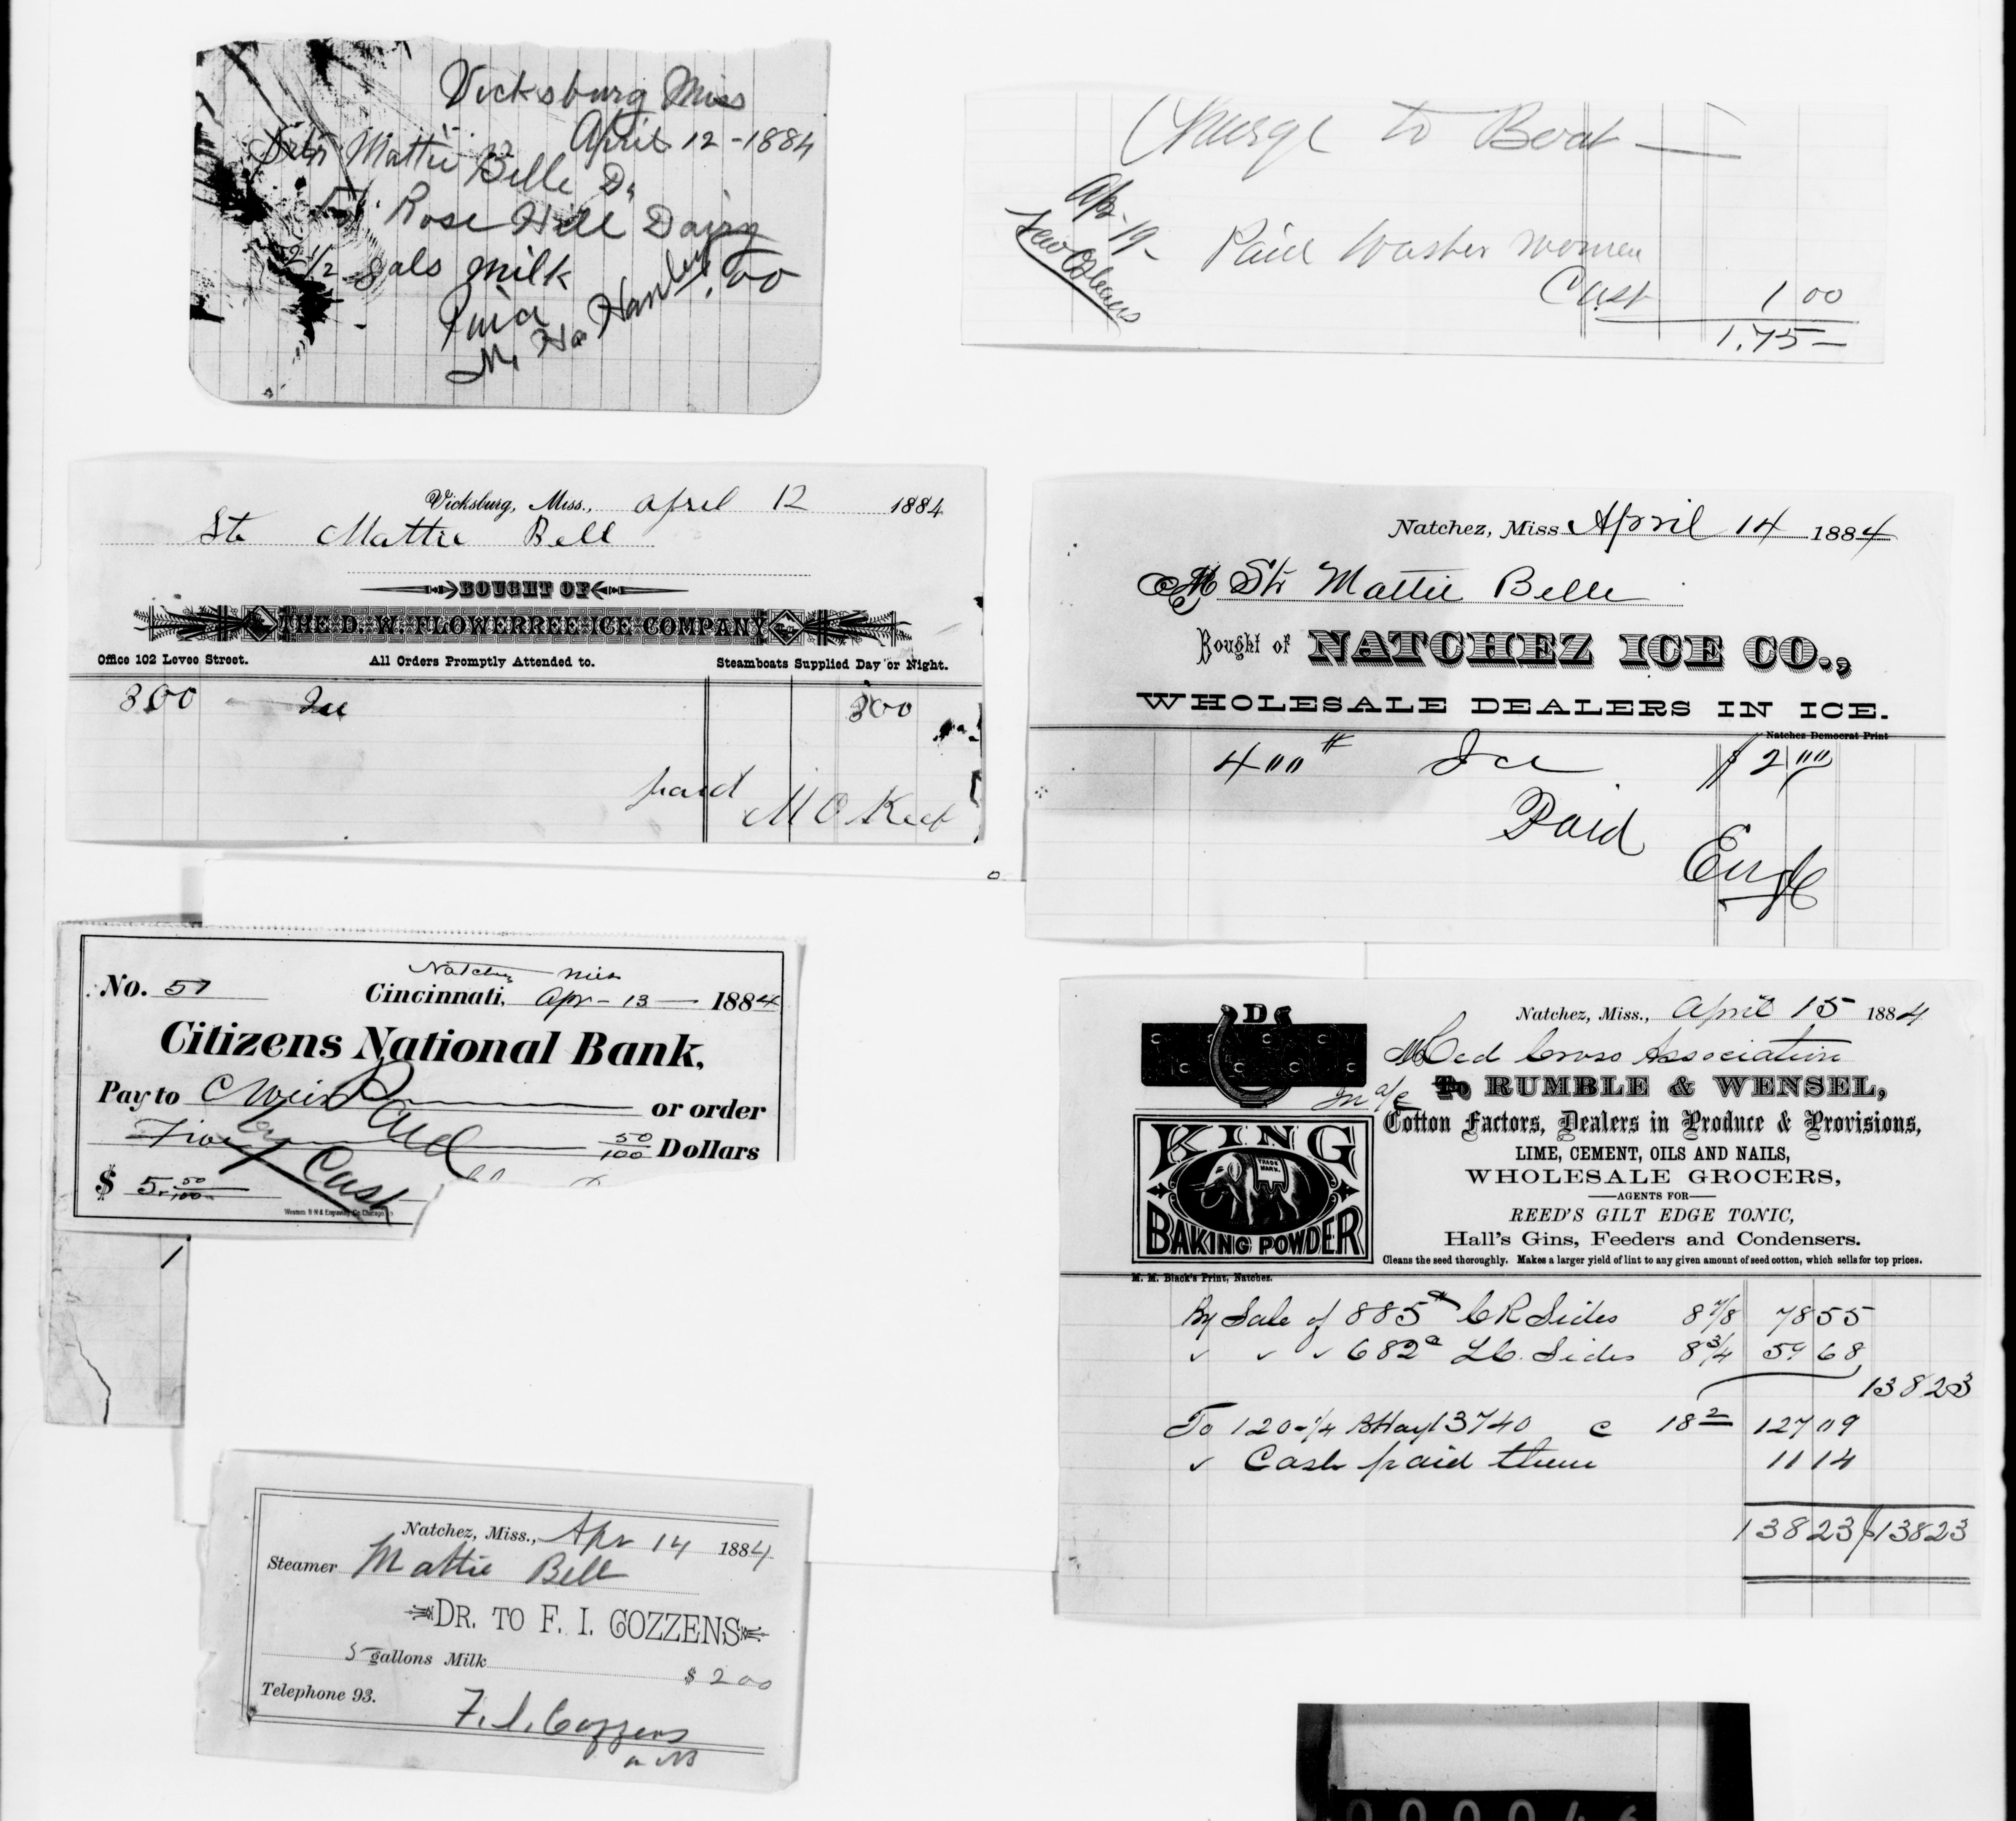 Vicksburg Miss
April 12 - 1884
Str Mattie Belle Dr
To Rose Hill Dairy
2 1/2 gals milk 1.00
Paid
Charge to Boat —
Apr. 19 -
New Orleans
Paid Washer women
Cash 1 00
1.75 —
Vicksburg, Miss., april 12 1884
Str Mattie Bell
BOUGHT OF
THE D. W. FLOWERREE ICE COMPANY
Office 102 Levee Street. All Orders Promptly Attended to. Steamboats Supplied Day or Night.
300 Ice 300
paid M O Keef
Natchez, Miss April 14 1884
M Str Mattie Belle
Bought of NATCHEZ ICE CO.,
WHOLESALE DEALERS IN ICE.
Natchez Democrat Print
400 # Ice $ 2 00
Paid
Natchez Miss
No. 57 Cincinnati, Apr - 13 — 1884
Citizens National Bank,
Pay to or order
Five 50/100 Dollars
Cash
$ 5. 50/100
Natchez, Miss., April 15 1884
M Red Cross Association
In a/c To RUMBLE & WENSEL,
Cotton Factors, Dealers in Produce & Provisions,
LIME, CEMENT, OILS AND NAILS,
WHOLESALE GROCERS,
AGENTS FOR
REED'S GILT EDGE TONIC,
Hall's Gins, Feeders and Condensers.
Cleans the seed thoroughly. Makes a larger yield of lint to any given amount of seed cotton, which sells for top prices.
D
C C C C
KING
TRADE MARK.
BAKING POWDER
M. M. Black's Print, Natchez.
By Sale of 885 # CR Sides 8 7/8 78 55
✓ ✓ ✓ 682 LC. Sides 8 3/4 59 68
138 23
To 120 - 1/4 B Hay 13740 c 18 2 127 09
✓ Cash paid them 11 14
138 23 $138 23
Natchez, Miss., Apr 14 1884
Steamer Mattie Bell
DR. TO F. I. COZZENS
5 gallons Milk $ 2 00
Telephone 93.
F. I. Cozzens
000046